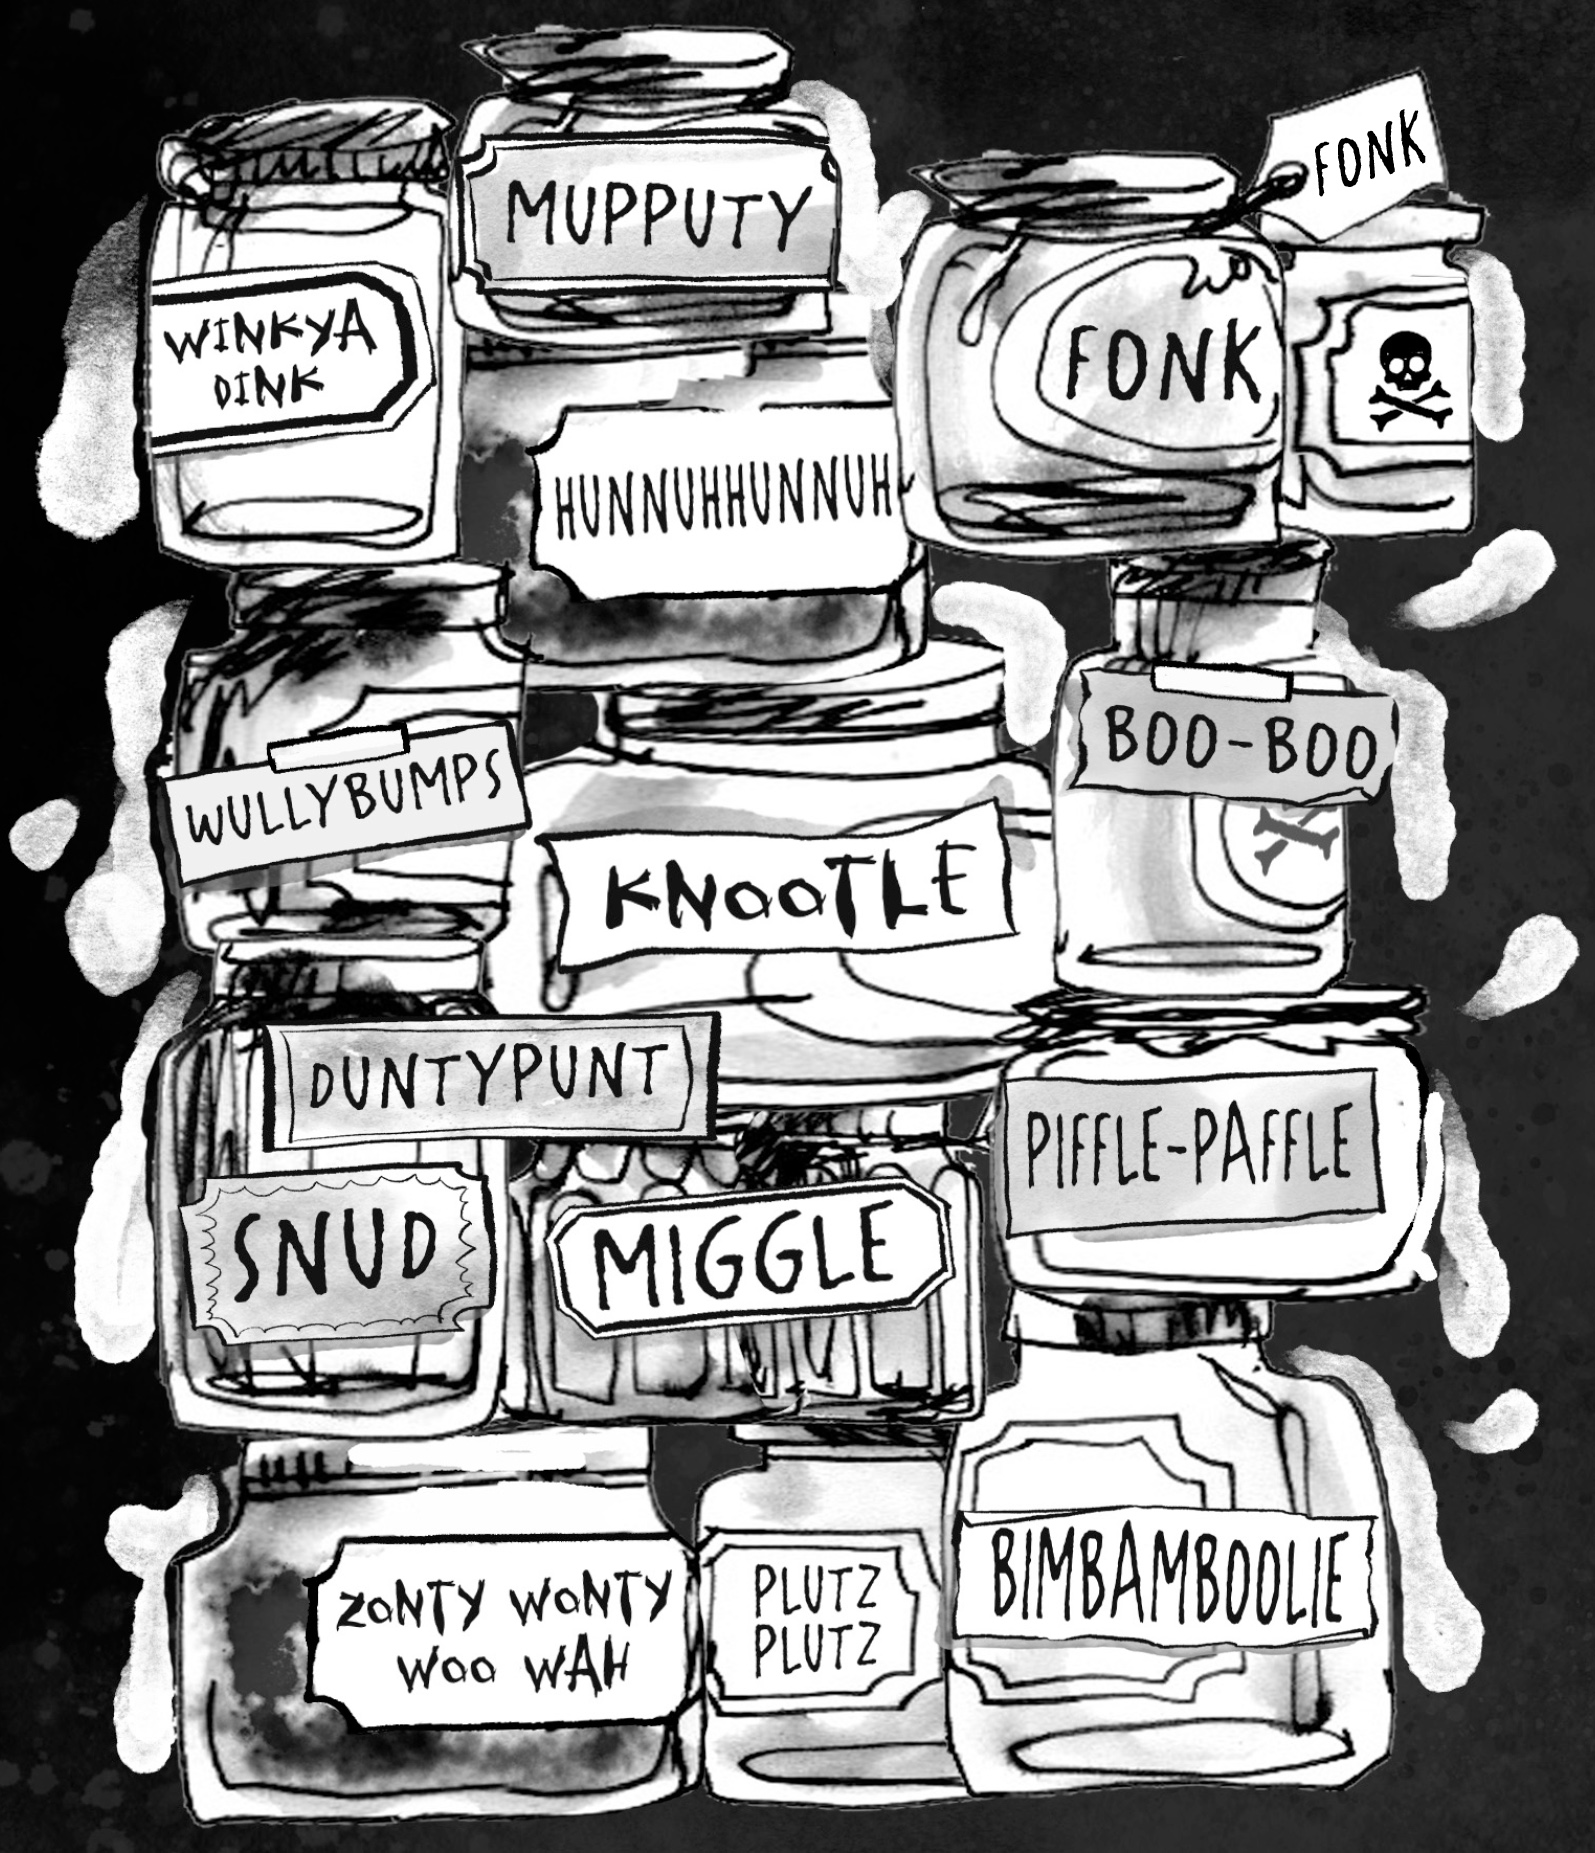 MUPPUTY
FONK
WINKYA
DINK
FONK
HUNNUHHUNNUH
WULLYBUMPS
BOO-BOO
KNOOTLE
DUNTYPUNT
PIFFLE-PAFFLE
SNUD
MIGGLE
ZONTY WONTY
WOO WAH
PLUTZ
PLUTZ
BIMBAMBOOLIE